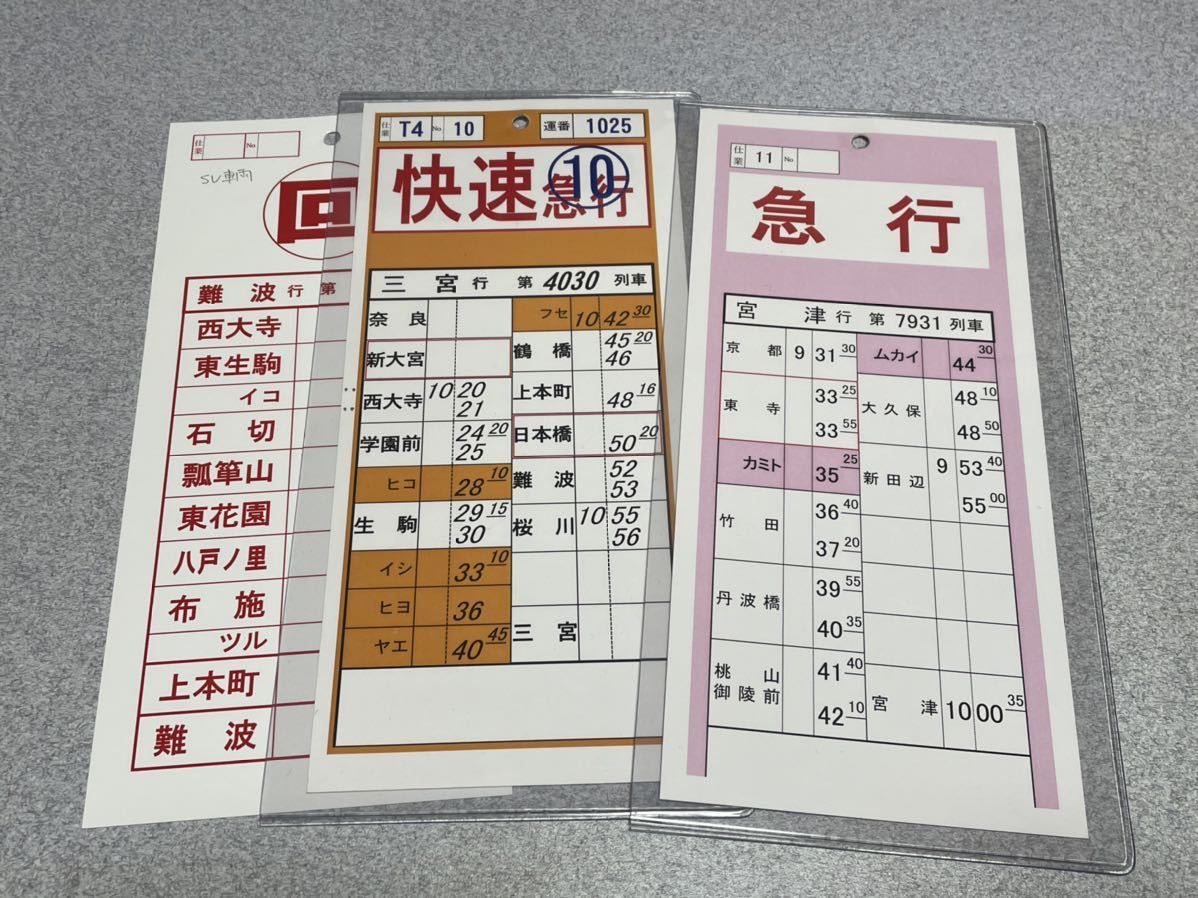 仕業 No
SV車両
回
難波 行 第
西大寺
東生駒
イコ
石切
瓢箪山
東花園
八戸ノ里
布施
ツル
上本町
難波
仕業 T4 No 10 運番 1025
快速急行 10
三宮 行 第 4030 列車
奈良
新大宮
西大寺 10 20
21
学園前 24 20
25
ヒコ 28 10
生駒 29 15
30
イシ 33 10
ヒヨ 36
ヤエ 40 45
フセ 10 42 30
鶴橋 45 20
46
上本町 48 16
日本橋 50 20
難波 52
53
桜川 10 55
56
三宮
仕業 11 No
急行
宮津 行 第 7931 列車
京都 9 31 30
東寺 33 25
33 55
カミト 35 25
竹田 36 40
37 20
丹波橋 39 55
40 35
桃山御陵前 41 40
42 10
ムカイ 44 30
大久保 48 10
48 50
新田辺 9 53 40
55 00
宮津 10 00 35